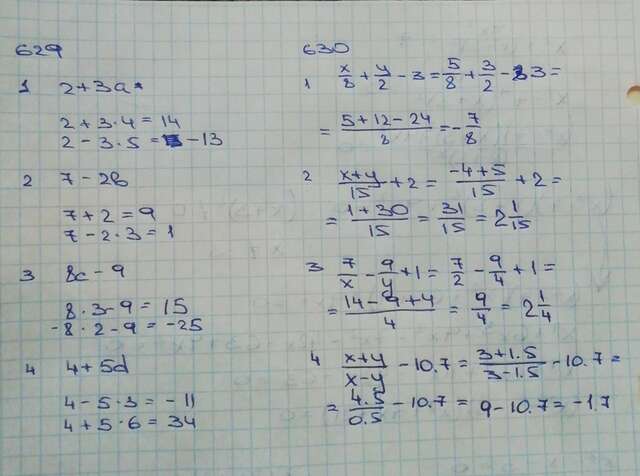 629
1 2+3a
2 + 3·4 = 14
2 - 3·5 = -13
2 7 - 2b
7 + 2 = 9
7 - 2·3 = 1
3 8c - 9
8·3 - 9 = 15
-8·2 - 9 = -25
4 4 + 5d
4 - 5·3 = -11
4 + 5·6 = 34
630
1 x/8 + y/2 - 3 = 5/8 + 3/2 - 3 =
= (5 + 12 - 24)/8 = -7/8
2 (x+y)/15 + 2 = (-4+5)/15 + 2 =
= (1+30)/15 = 31/15 = 2 1/15
3 7/x - 9/y + 1 = 7/2 - 9/4 + 1 =
= (14 - 9 + 4)/4 = 9/4 = 2 1/4
4 (x+y)/(x-y) - 10.7 = (3+1.5)/(3-1.5) - 10.7 =
= 4.5/0.5 - 10.7 = 9 - 10.7 = -1.7